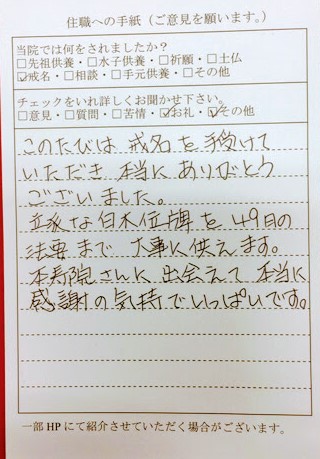 住職への手紙（ご意見を願います。）
当院では何をされましたか？
□先祖供養・□水子供養・□祈願・□土仏
☑戒名・□相談・□手元供養・□その他
チェックをいれ詳しくお聞かせ下さい。
□意見・□質問・□苦情・☑お礼・☑その他
このたびは 戒名を授けて
いただき 本当に ありがとう
ございました。
立派な白木位牌を49日の
法要まで 大事に供えます。
本寿院さんに 出会えて 本当に
感謝の気持でいっぱいです。
一部HPにて紹介させていただく場合がございます。